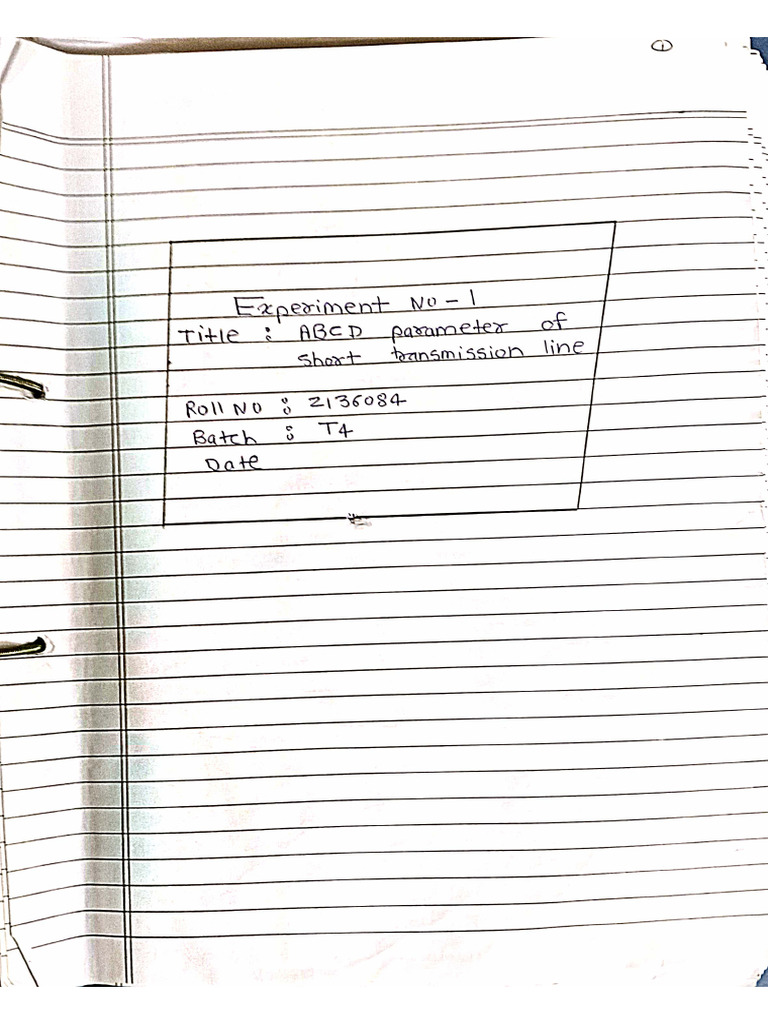 1
Experiment No - 1
Title : ABCD parameter of
short transmission line
Roll No : 2136084
Batch : T4
Date